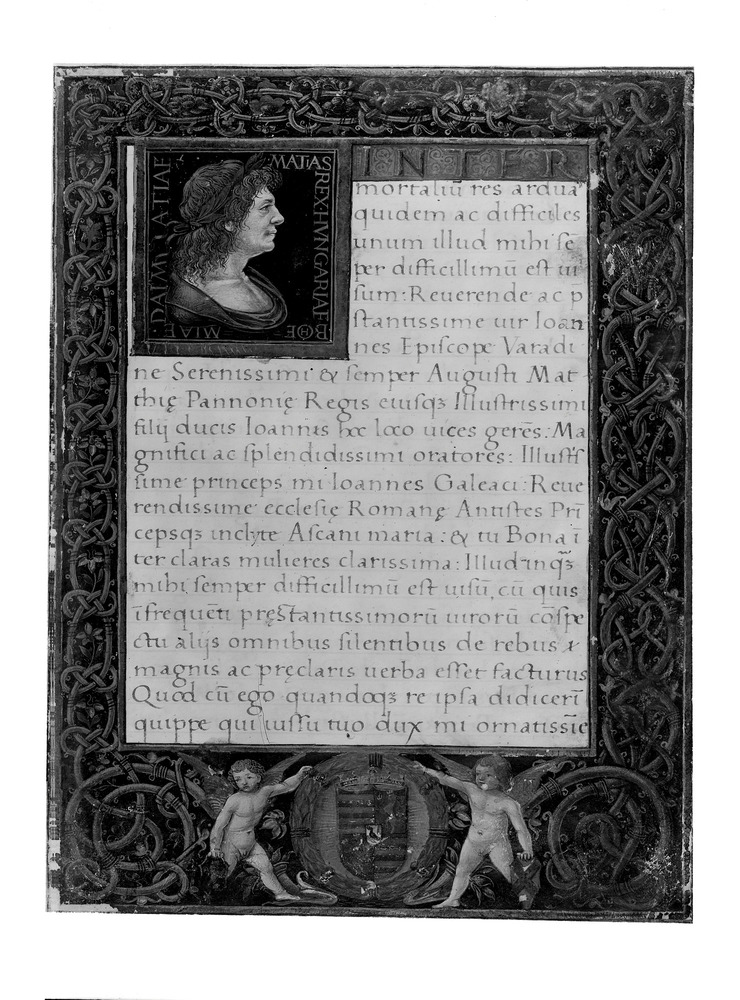 MATIAS REX HVNGARIAE BOE MIAE DALMATIAE
INTER
mortaliū res ardua
quidem ac difficiles
unum illud mihi se
per difficillimū est ui
sum: Reuerende ac p
stantissime uir Ioan
nes Episcope Varadi
ne Serenissimi & semper Augusti Mat
thię Pannonię Regis eiusqꝫ Illustrissimi
filij ducis Ioannis hoc loco uices gerēs: Ma
gnifici ac splendidissimi oratores: Illust
sime princeps mi Ioannes Galeaci: Reue
rendissime ecclesię Romanę Antistes Prī
cepsqꝫ inclyte Ascani maria: & tu Bona ī
ter claras mulieres clarissima: Illud inqꝫ
mihi semper difficillimū est uisū, cū quis
ī frequēti pręstantissimorū uirorū cōspe
ctu alijs omnibus silentibus de rebus
magnis ac pręclaris uerba esset facturus
Quod cū ego quandoqꝫ re ipsa didicerī
quippe qui iussu tuo dux mi ornatissīe